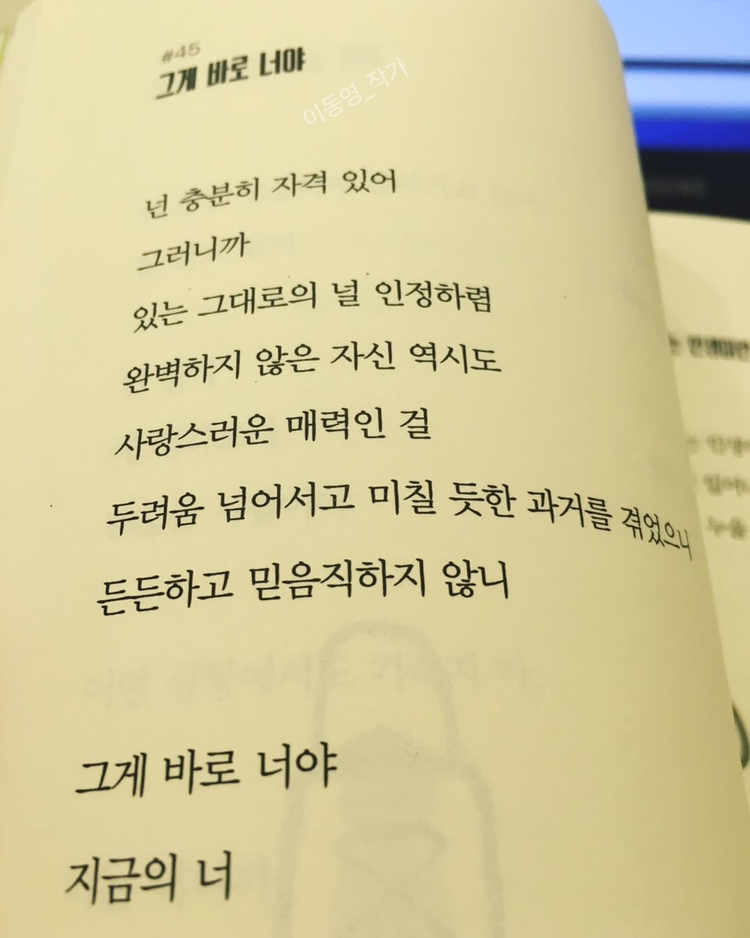 #45
그게 바로 너야
이동영_작가
넌 충분히 자격 있어
그러니까
있는 그대로의 널 인정하렴
완벽하지 않은 자신 역시도
사랑스러운 매력인 걸
두려움 넘어서고 미칠 듯한 과거를 겪었으니
든든하고 믿음직하지 않니
그게 바로 너야
지금의 너